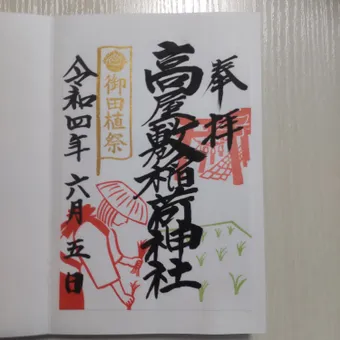 奉拝
高屋敷稲荷神社
御田植祭
令和四年六月五日